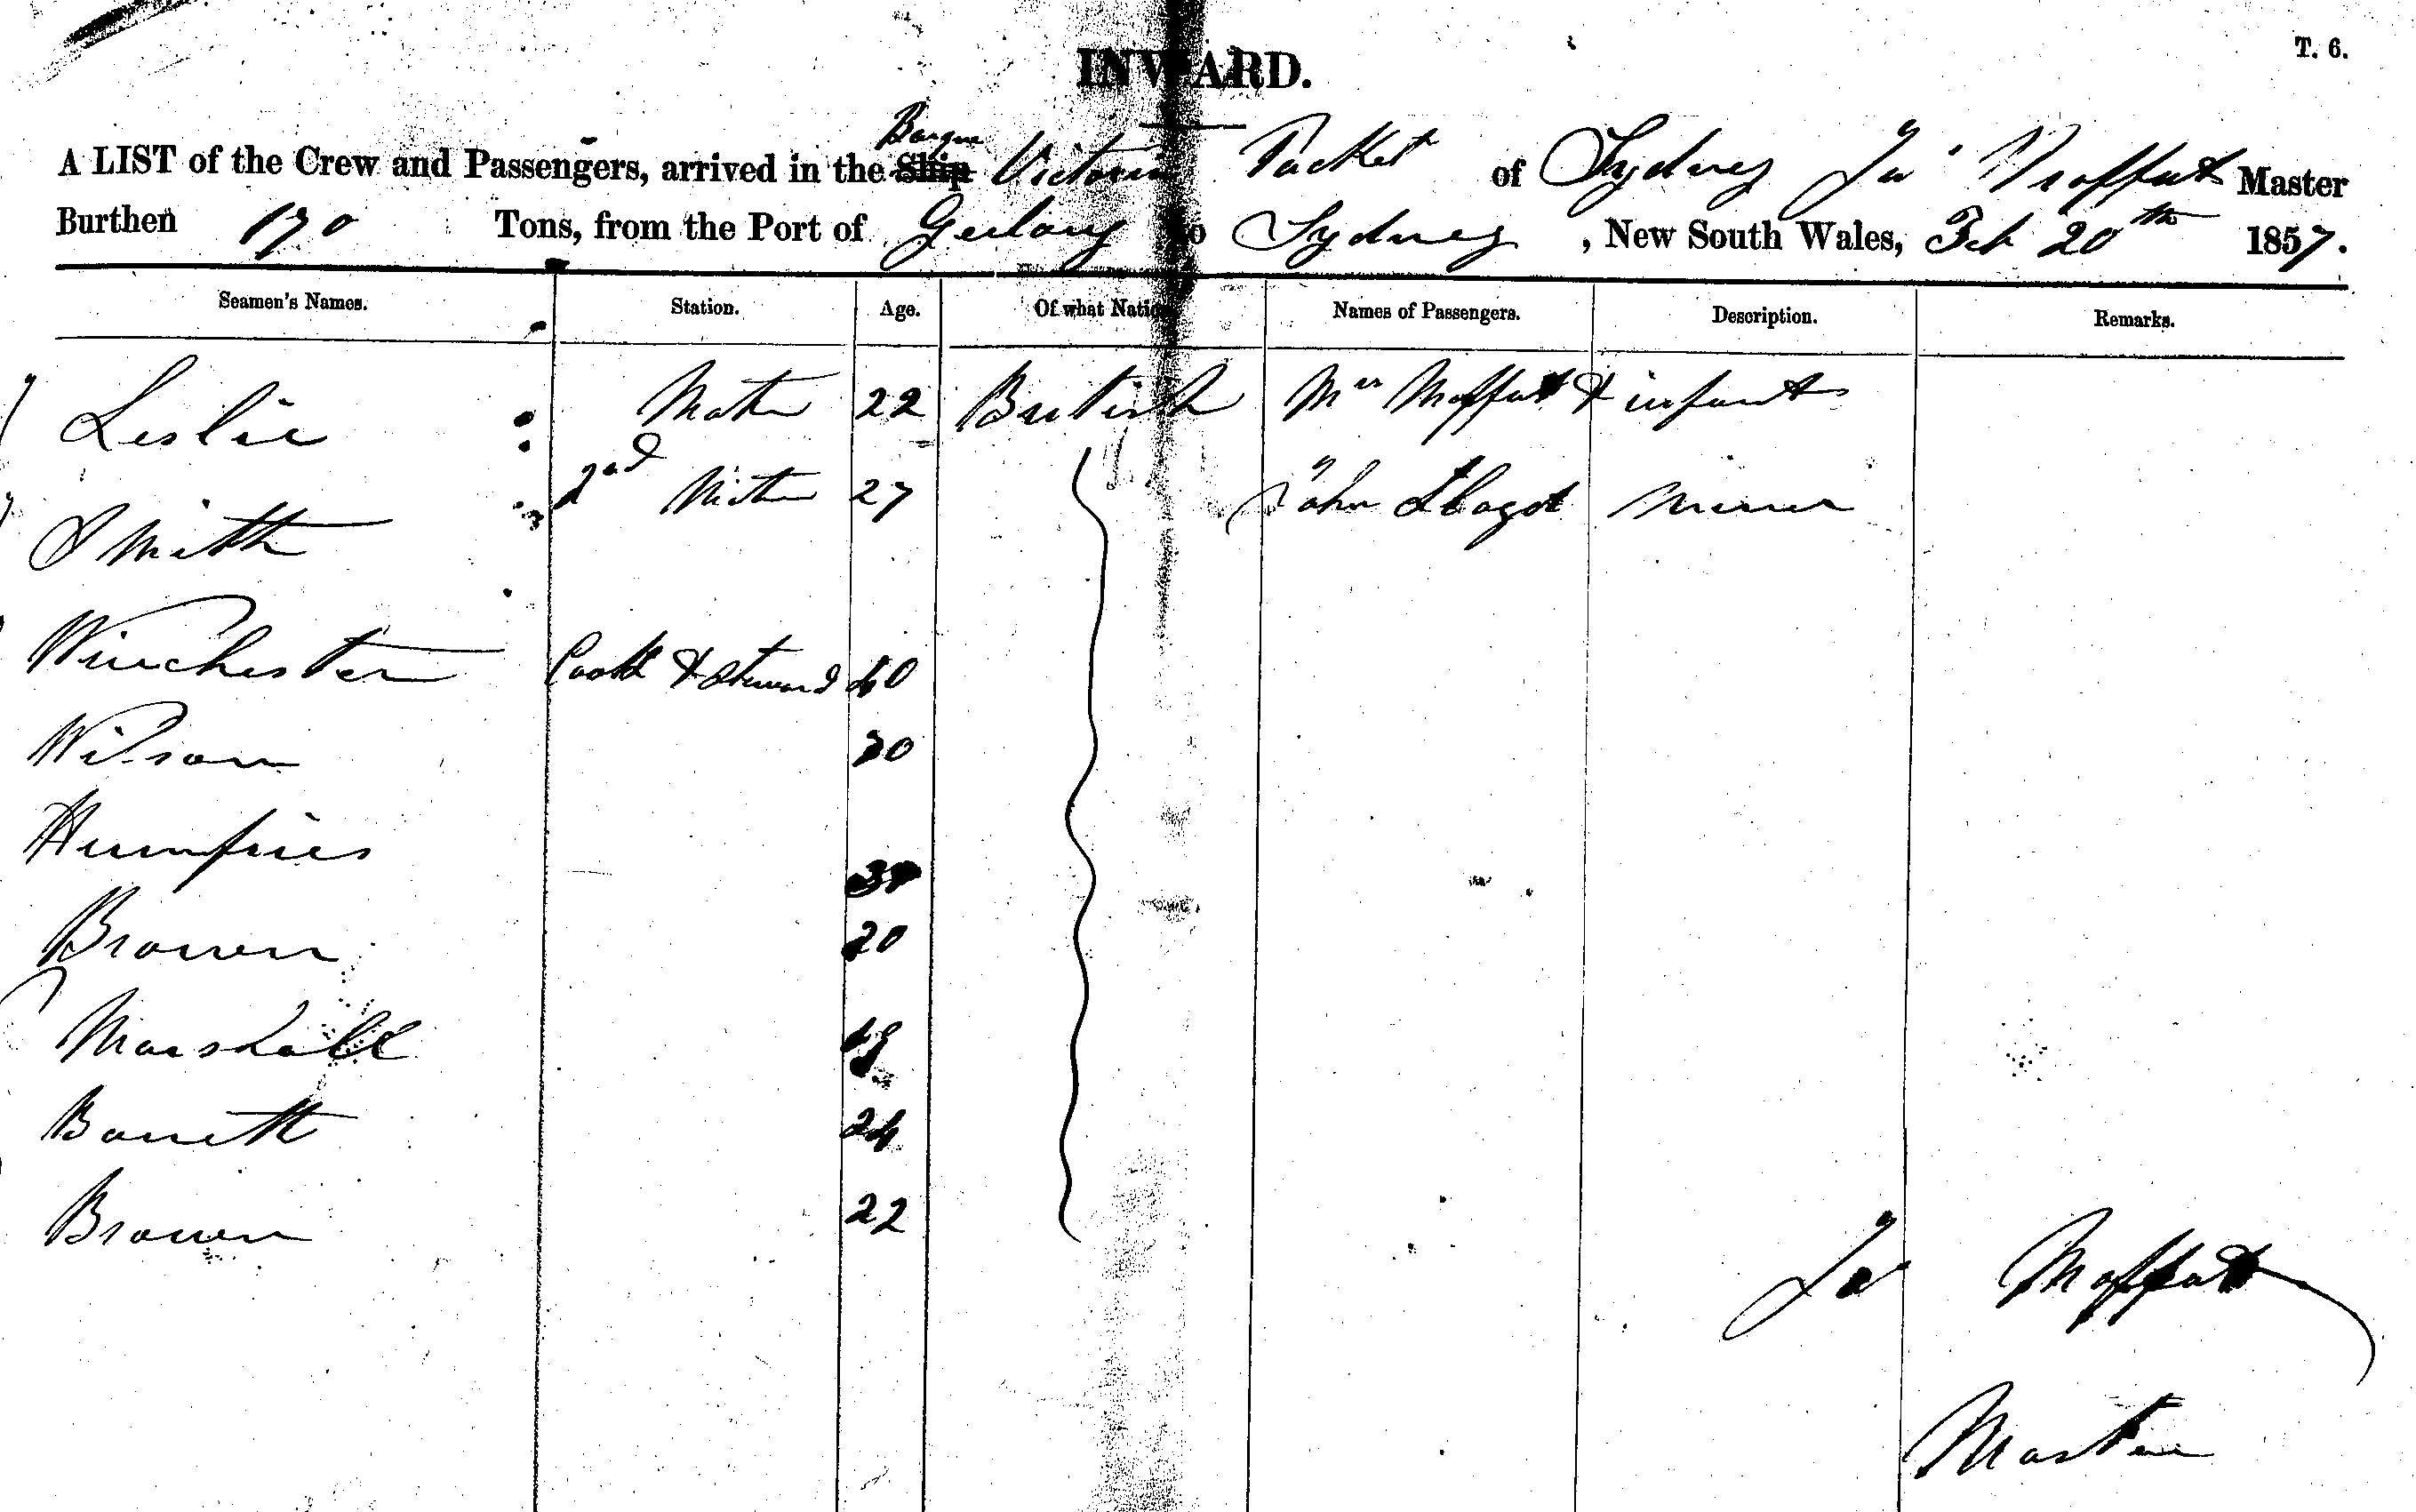 INWARD.
T. 6.
Barque
A LIST of the Crew and Passengers, arrived in the Ship Victoria Packet of Sydney Jas Moffatt Master
Burthen 170 Tons, from the Port of Geelong to Sydney, New South Wales, Feb 20th 1857.
Seamen's Names. Station. Age. Of what Nation Names of Passengers. Description. Remarks.
Leslie Mate 22 British Mrs Moffatt & infant
Smith 2nd Mate 27 John Miner
Winchester Cook & Steward 40
Wilson 30
Humfries
Brown 20
Marshall
Barrett 24
Brown 22
Jas Moffatt
Master